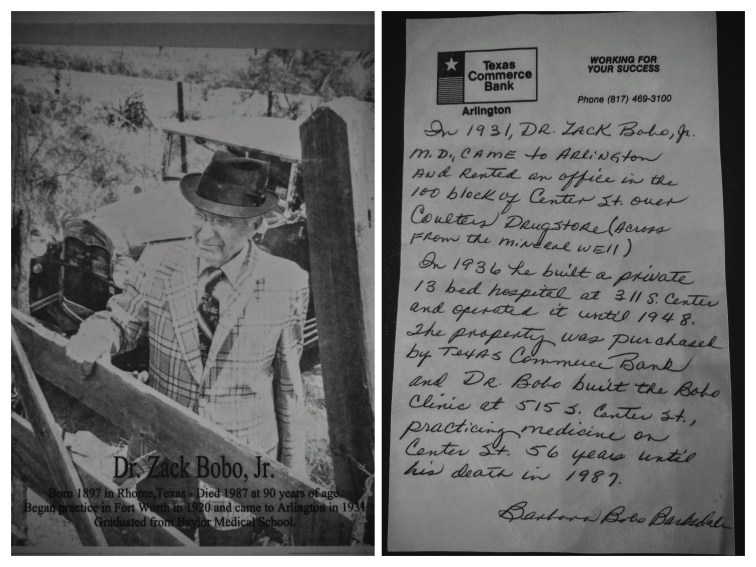 Dr. Zack Bobo, Jr.
Born 1897 in Rhome,Texas - Died 1987 at 90 years of age.
Began practice in Fort Worth in 1920 and came to Arlington in 1931
Graduated from Baylor Medical School.
Texas
Commerce
Bank
Arlington
WORKING FOR
YOUR SUCCESS
Phone (817) 469-3100
In 1931, DR. ZACK Bobo, Jr.
M.D., CAME to ARLINGTON
AND Rented an office in the
100 block of Center St. over
Coulters DRUGSTORE (ACROSS
FROM the MINERAL WELL)
In 1936 he built a private
13 bed hospital at 311 S. Center
and operated it until 1948.
The property was purchased
by TEXAS Commerce Bank
and DR. Bobo built the Bobo
Clinic at 515 S. Center St.,
practicing medicine on
Center St. 56 years until
his death in 1987.
Barbara Bobo Barksdale